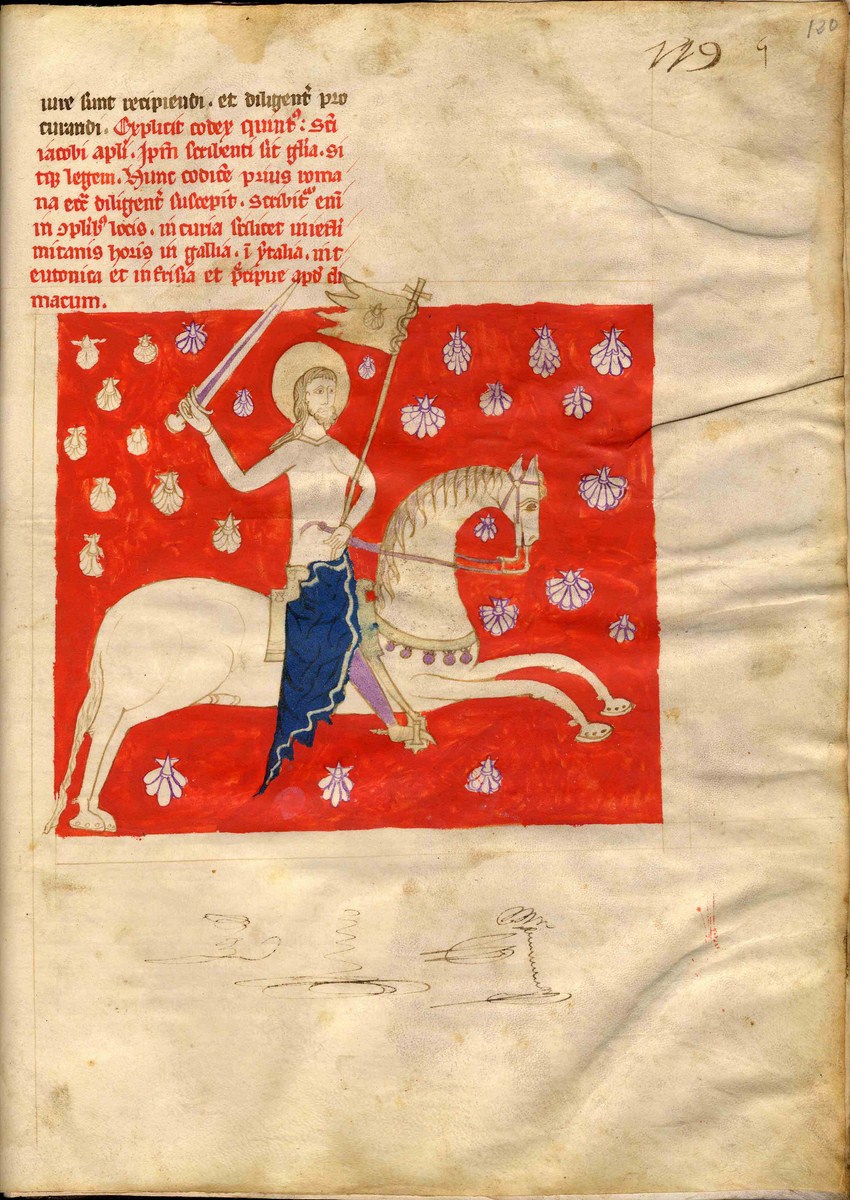 130
119 9
iure sunt recipiendi. et diligent̃ pro
curandi. Explicit codex quintꝰ: sc̃i
iacobi apl̃i. Ip̃m scribenti sit gl̃ia. si
tq; legem. Hunc codicẽ prius roma
na ecc̃ diligent̃ suscepit. scribit̃ eni
in ɔplibꝰ locis. in curia scilicet
mitanis horis in gallia. ĩ ytalia.
eutonica et in frisia et p̃cipue apd̃
macum.